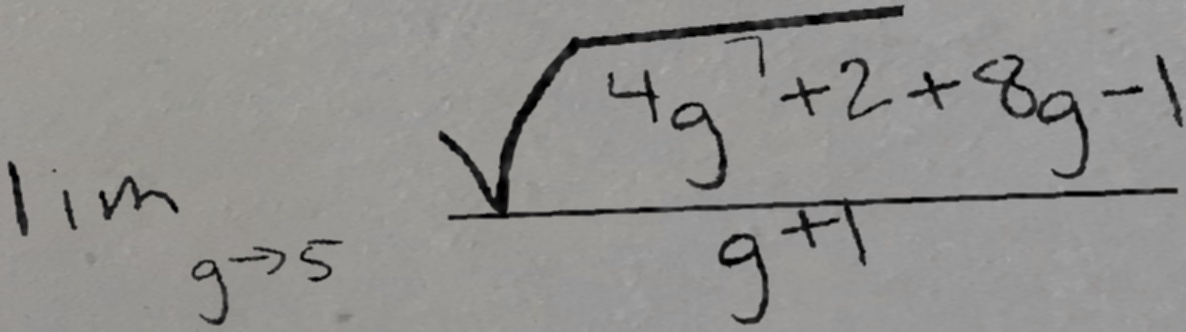 \lim_{g \to 5} \frac{\sqrt{4g^7+2}+8g-1}{g+1}